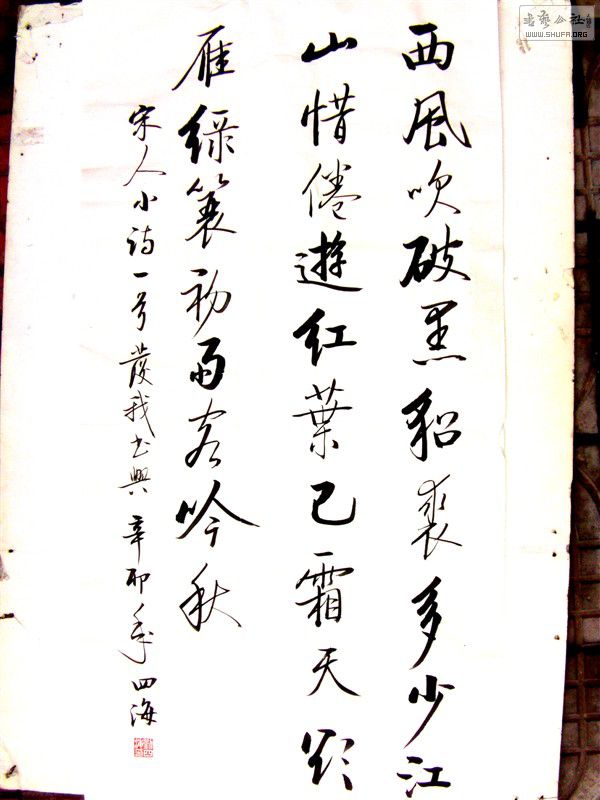 西風吹破黑貂裘多少江
山惜倦遊紅葉已霜天欲
雁綠蓑初雨客吟秋
宋人小诗一首發我書興 辛卯年四海
書藝公社
WWW.SHUFA.ORG